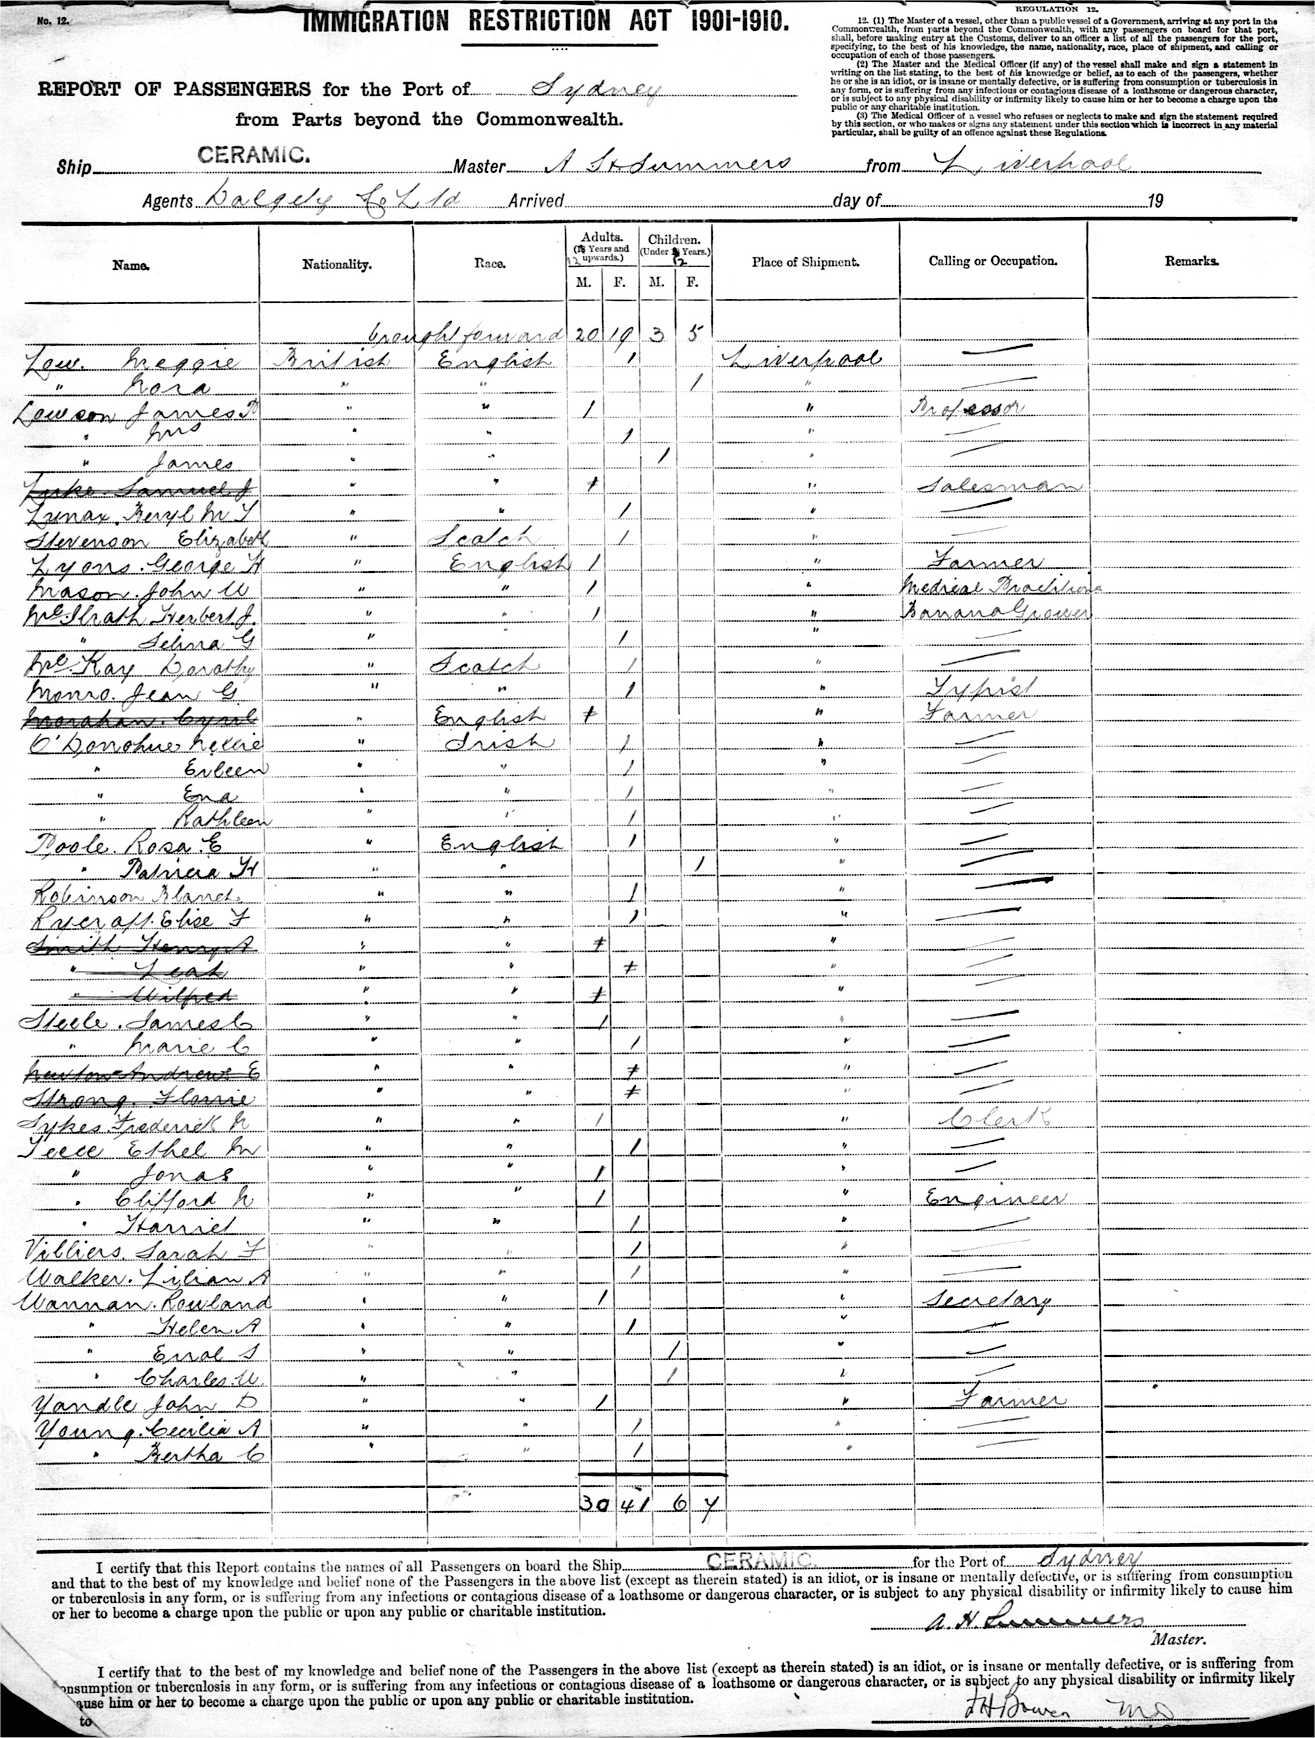 No. 12.
IMMIGRATION RESTRICTION ACT 1901-1910.
REPORT OF PASSENGERS for the Port of Sydney
from Parts beyond the Commonwealth.
REGULATION 12.
12. (1) The Master of a vessel, other than a public vessel of a Government, arriving at any port in the
Commonwealth, from parts beyond the Commonwealth, with any passengers on board for that port,
shall, before making entry at the Customs, deliver to an officer a list of all the passengers for the port,
specifying, to the best of his knowledge, the name, nationality, race, place of shipment, and calling or
occupation of each of those passengers.
(2) The Master and the Medical Officer (if any) of the vessel shall make and sign a statement in
writing on the list stating, to the best of his knowledge or belief, as to each of the passengers, whether
he or she is an idiot, or is insane or mentally defective, or is suffering from consumption or tuberculosis in
any form, or is suffering from any infectious or contagious disease of a loathsome or dangerous character,
or is subject to any physical disability or infirmity likely to cause him or her to become a charge upon the
public or any charitable institution.
(3) The Medical Officer of a vessel who refuses or neglects to make and sign the statement required
by this section, or who makes or signs any statement under this section which is incorrect in any material
particular, shall be guilty of an offence against these Regulations.
Ship CERAMIC. Master A H Summers from Liverpool
Agents Dalgety & Co Ltd Arrived day of 19
Name. Nationality. Race. Adults. (Years and upwards.) Children. (Under 12 Years.) Place of Shipment. Calling or Occupation. Remarks.
M. F. M. F.
brought forward 20 19 3 5
Low. Meggie British English 1 Liverpool —
" Nora " " 1 " —
Lowson James P " " 1 " Professor
" Mrs " " 1 " —
" James " " 1 " —
Luke Samuel J " " 1 " Salesman
Lunax. Beryl M L " " 1 " —
Stevenson Elizabeth " Scotch 1 " —
Lyons. George H " English 1 " Farmer
Mason. John W " " 1 " Medical Practitioner
McIlrath Herbert J. " " 1 " Banana Grower
" Selina G " " 1 " —
McKay Dorothy " Scotch 1 " —
Monro. Jean G " " 1 " Typist
Morahan. Cyril " English 1 " Farmer
O'Donohue Nellie " Irish 1 " —
" Eileen " " 1 " —
" Ena " " 1 " —
" Kathleen " " 1 " —
Poole. Rosa E " English 1 " —
" Patricia H " " 1 " —
Robinson Blanch. " " 1 " —
Rycroft. Elise F " " 1 " —
Smith Henry A " " 1 " —
" Leah " " 1 " —
" Wilfred " " 1 " —
Steele. James C " " 1 " —
" Marie C " " 1 " —
Newton Andrews E " " 1 " —
Strong. Florrie " " 1 " —
Sykes. Frederick N " " 1 " Clerk
Teece Ethel M " " 1 " —
" Jonas " " 1 " —
" Clifford N " " 1 " Engineer
" Harriet " " 1 " —
Villiers. Sarah F " " 1 " —
Walker. Lilian A " " 1 " —
Wannan. Rowland " " 1 " Secretary
" Helen A " " 1 " —
" Errol S " " 1 " —
" Charles. W " " 1 " —
Yandle John D " " 1 " Farmer
Young. Cecilia A " " 1 " —
" Bertha C " " 1 " —
30 41 6 7
I certify that this Report contains the names of all Passengers on board the Ship CERAMIC. for the Port of Sydney
and that to the best of my knowledge and belief none of the Passengers in the above list (except as therein stated) is an idiot, or is insane or mentally defective, or is suffering from consumption
or tuberculosis in any form, or is suffering from any infectious or contagious disease of a loathsome or dangerous character, or is subject to any physical disability or infirmity likely to cause him
or her to become a charge upon the public or upon any public or charitable institution.
A. H. Summers
Master.
I certify that to the best of my knowledge and belief none of the Passengers in the above list (except as therein stated) is an idiot, or is insane or mentally defective, or is suffering from
consumption or tuberculosis in any form, or is suffering from any infectious or contagious disease of a loathsome or dangerous character, or is subject to any physical disability or infirmity likely
to cause him or her to become a charge upon the public or upon any public or charitable institution.